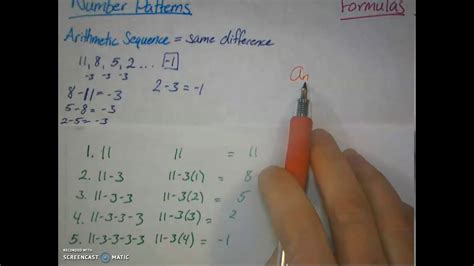 Number Patterns
Formulas
Arithmetic Sequence = same difference
11, 8, 5, 2 ... -1
-3 -3 -3
8-11 = -3
2-3 = -1
5-8 = -3
2-5 = -3
an
1. 11 11 = 11
2. 11-3 11-3(1) = 8
3. 11-3-3 11-3(2) = 5
4. 11-3-3-3 11-3(3) = 2
5. 11-3-3-3-3 11-3(4) = -1
RECORDED WITH
SCREENCAST MATIC